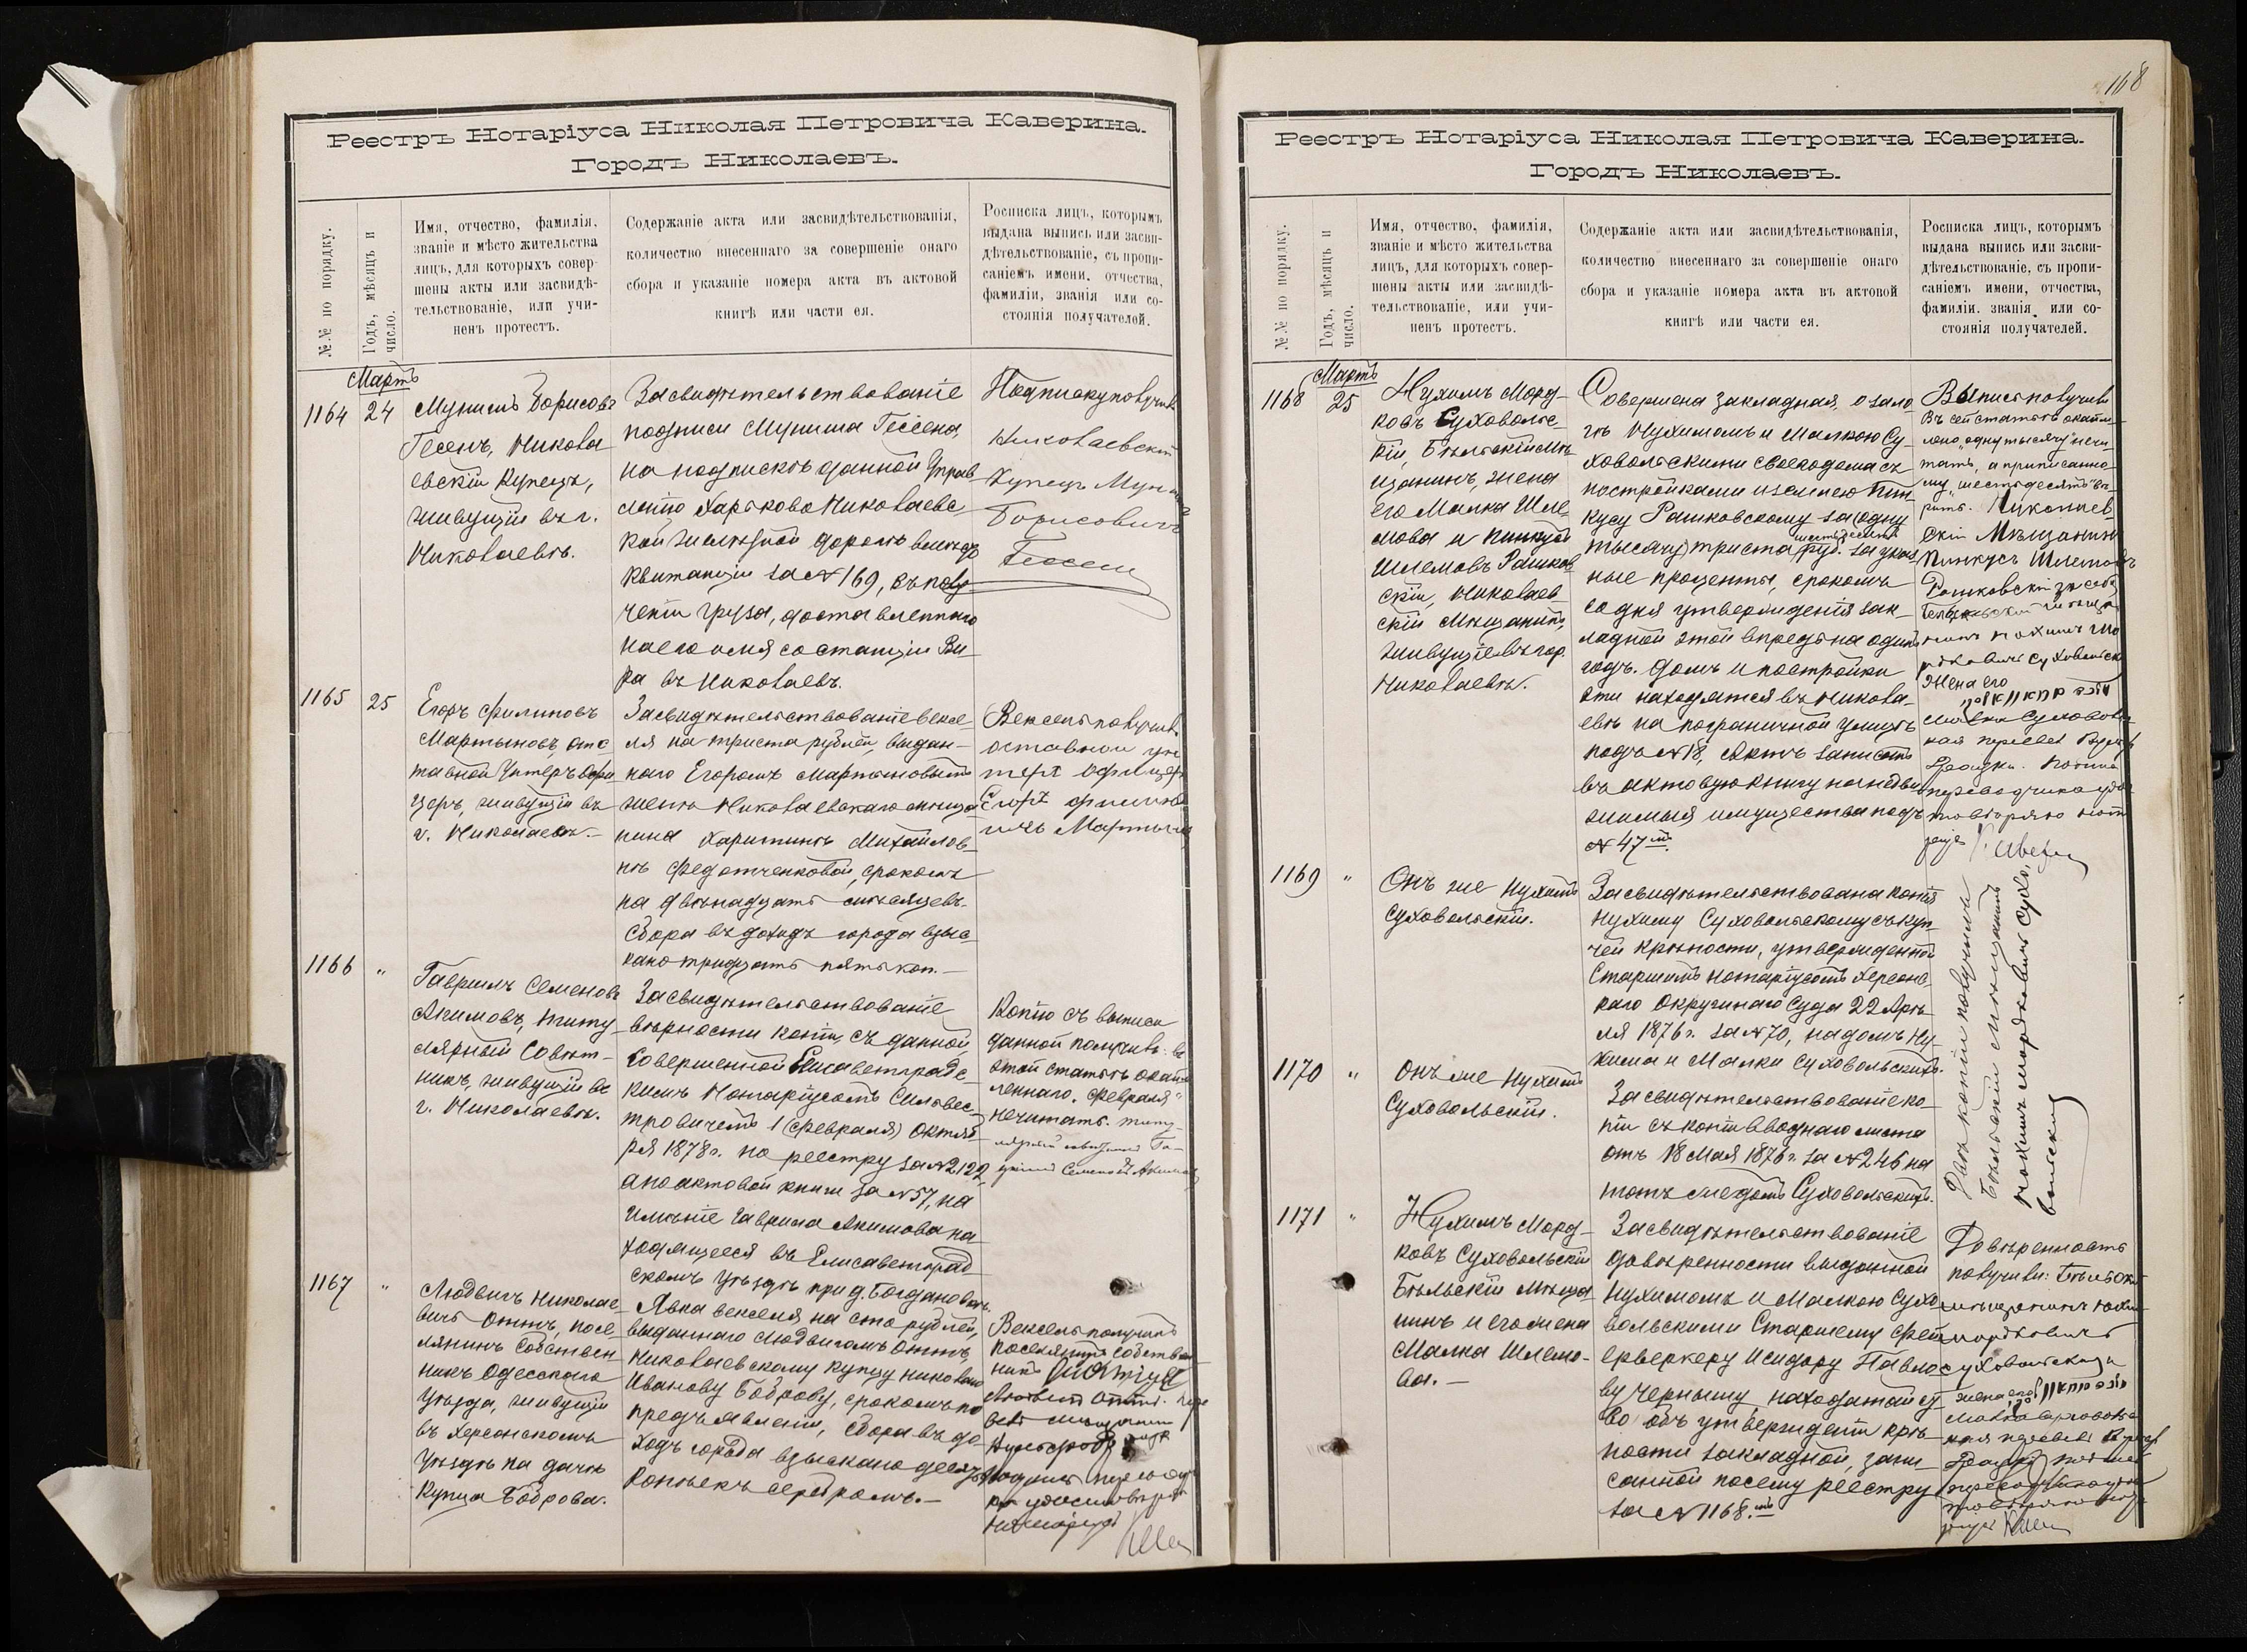 Реестръ Нотаріуса Николая Петровича Каверина.
Городъ Николаевъ.
№№ по порядку.
Годъ, мѣсяцъ и
число.
Имя, отчество, фамилія,
званіе и мѣсто жительства
лицъ, для которыхъ совер-
шены акты или засвидѣ-
тельствованіе, или учи-
ненъ протестъ.
Содержаніе акта или засвидѣтельствованія,
количество внесеннаго за совершеніе онаго
сбора и указаніе номера акта въ актовой
книгѣ или части ея.
Росписка лицъ, которымъ
выдана выпись или засви-
дѣтельствованіе, съ пропи-
саніемъ имени, отчества,
фамиліи, званія или со-
стоянія получателей.
Мартъ
1164
24
Мунишъ Борисовъ
Гесенъ, Никола
евскій Купецъ,
живущій въ г.
Николаевѣ.
Засвидѣтельствованіе
подписи Муниша Гессена,
на подпискѣ данной Управ
ленію Харьково Николаевс-
кой желѣзной дороги вмѣсто
квитанціи за № 169, въ полу-
ченіи груза, доставленнаго
на его имя со станціи Ви-
ра въ Николаевъ.
Подписку получилъ
Николаевскій
Купецъ Муниш
Борисовичъ
Гессен
1165
25
Егоръ Филиповъ
Мартыновъ, отс
тавной Унтеръ Офи
церъ, живущій въ
г. Николаевѣ.
Засвидѣтельствованіе вексе-
ля на триста рублей, выдан-
наго Егоромъ Мартыновымъ
женѣ Николаевскаго мѣща-
нина Харитинѣ Михайлов-
нѣ Федотченковой, срокомъ
на двѣнадцать мѣсяцевъ.
Сбора въ доходъ города взыс-
кано тридцать пять коп.
Вексель получилъ
оставной ун
теръ Офицеръ
Егоръ Филипов
ичъ Мартынов
1166
"
Гавріилъ Семеновъ
Акимовъ, титу-
лярный Совѣт-
никъ, живущій въ
г. Николаевѣ.
Засвидѣтельствованіе
вѣрности копіи, съ данной
Совершенной Елисаветградс-
кимъ Нотаріусомъ Сильвес-
тровичемъ 1 (Февраля) Октяб
ря 1878 г. по реестру за № 2122,
а по актовой книги за № 57, на
имѣніе Гавриила Акимова на-
ходящееся въ Елисаветград-
скомъ Уѣздѣ при д. Богдановкѣ.
Копію съ выписи
данной получилъ: въ
этой статьѣ окайм
леннаго "Февраля"
нечитать. титу-
лярный совѣтникъ Га-
вріилъ Семеновъ Акимовъ
1167
"
Людвигъ Николае-
вичъ Оттъ, посе-
лянинъ Собствен-
никъ Одесскаго
Уѣзда, живущій
въ Херсонскомъ
Уѣздѣ на дачѣ
Купца Боброва.
Явка векселя на сто рублей,
выданнаго Людвигомъ Оттъ,
Николаевскому Купцу Николаю
Иванову Боброву, срокомъ по
предъявленіи, Сбора въ до-
ходъ города взыскано десять
копѣекъ серебромъ.
Вексель получилъ
поселянинъ Собствен
никъ
Людвигъ Оттъ.
168
Реестръ Нотаріуса Николая Петровича Каверина.
Городъ Николаевъ.
№№ по порядку.
Годъ, мѣсяцъ и
число.
Имя, отчество, фамилія,
званіе и мѣсто жительства
лицъ, для которыхъ совер-
шены акты или засвидѣ-
тельствованіе, или учи-
ненъ протестъ.
Содержаніе акта или засвидѣтельствованія,
количество внесеннаго за совершеніе онаго
сбора и указаніе номера акта въ актовой
книгѣ или части ея.
Росписка лицъ, которымъ
выдана выпись или засви-
дѣтельствованіе, съ пропи-
саніемъ имени, отчества,
фамиліи, званія или со-
стоянія получателей.
Мартъ
1168
25
Нухимъ Морд-
ковъ Суховольс-
кій, Бѣльскій Мѣ
щанинъ, жена
его Малка Шле-
мова и Пинкусъ
Шлемовъ Рашков
скій, Николаев
скій Мѣщанинъ,
живущіе въ гор.
Николаевѣ.
Совершена закладная, о зало-
гѣ Нухимомъ и Малкою Су-
ховольскими своего дома съ
постройками и землею Пин-
кусу Рашковскому за (одну
шестьдесятъ
тысячу) триста руб. за указ
ные проценты, срокомъ
со дня утвержденія зак-
ладной этой впредь на одинъ
годъ. Домъ и постройки
эти находятся въ Никола-
евѣ на пограничной улицѣ
подъ № 18, Актъ записанъ
въ актовую книгу на недви
жимыя имущества подъ
№ 47 мъ.
Выпись получилъ
Въ сей статьѣ окайм-
лено "одну тысячу" нечи-
тать, а приписанно-
му "шестьдесятъ" вѣ-
рить. Николаев-
скій Мѣщанинъ
Пинкусъ Шлемовъ
Рашковскій
Нохимъ Мо
рдковичъ Суховольск
Жена его
1169
"
Онъ же Нухимъ
Суховольскій.
Засвидѣтельствована копія
Нухиму Суховольскому съ куп-
чей крѣпости, утвержденной
Старшимъ Нотаріусомъ Херсонс-
каго Окружнаго Суда 22 Апрѣ-
ля 1876 г. за № 70, на домъ Ну-
хима и Малки Суховольскихъ.
1170
"
Онъ же Нухимъ
Суховольскій.
Засвидѣтельствованіе ко-
піи съ копіи вводнаго листа
отъ 18 Мая 1876 г. за № 246 на
тотъ же домъ Суховольскихъ.
Двѣ копіи получилъ
Бѣльскій мѣщанинъ
Нохимъ мордковичъ Сухо
вольский
1171
"
Нухимъ Морд-
ковъ Суховольскій
Бѣльскій Мѣща-
нинъ и его жена
Малка Шлемо-
ва.
Засвидѣтельствованіе
довѣренности выданной
Нухимомъ и Малкою Сухо-
вольскими Старшему Фей-
ерверкеру Исидору Павло-
ву Чернышу, на ходатайст
во объ утвержденіи крѣ-
пости закладной, запи-
санной по сему реестру
за № 1168. мъ
Довѣренность
получили: Бѣльскій
мѣщанинъ Нохим
мордковичъ
Суховольский и
жена его